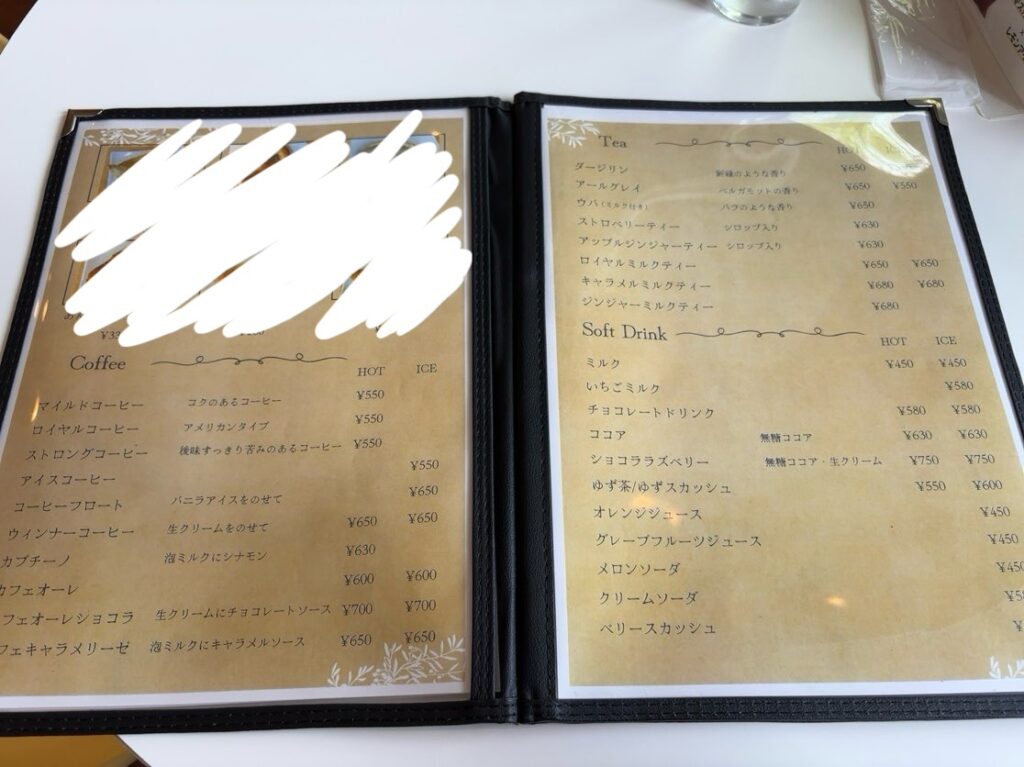 ¥33
Coffee
HOT ICE
マイルドコーヒー コクのあるコーヒー ¥550
ロイヤルコーヒー アメリカンタイプ ¥550
ストロングコーヒー 後味すっきり苦みのあるコーヒー ¥550
アイスコーヒー ¥550
コーヒーフロート バニラアイスをのせて ¥650
ウィンナーコーヒー 生クリームをのせて ¥650 ¥650
カプチーノ 泡ミルクにシナモン ¥630
カフェオーレ ¥600 ¥600
フェオーレショコラ 生クリームにチョコレートソース ¥700 ¥700
フェキャラメリーゼ 泡ミルクにキャラメルソース ¥650 ¥650
Tea
ダージリン 新緑のような香り ¥650
アールグレイ ベルガモットの香り ¥650 ¥550
ウバ(ミルク付き) バラのような香り ¥650
ストロベリーティー シロップ入り ¥630
アップルジンジャーティー シロップ入り ¥630
ロイヤルミルクティー ¥650 ¥650
キャラメルミルクティー ¥680 ¥680
ジンジャーミルクティー ¥680
Soft Drink
HOT ICE
ミルク ¥450 ¥450
いちごミルク ¥580
チョコレートドリンク ¥580 ¥580
ココア 無糖ココア ¥630 ¥630
ショコララズベリー 無糖ココア・生クリーム ¥750 ¥750
ゆず茶/ゆずスカッシュ ¥550 ¥600
オレンジジュース ¥450
グレープフルーツジュース ¥450
メロンソーダ ¥450
クリームソーダ ¥5
ベリースカッシュ ¥